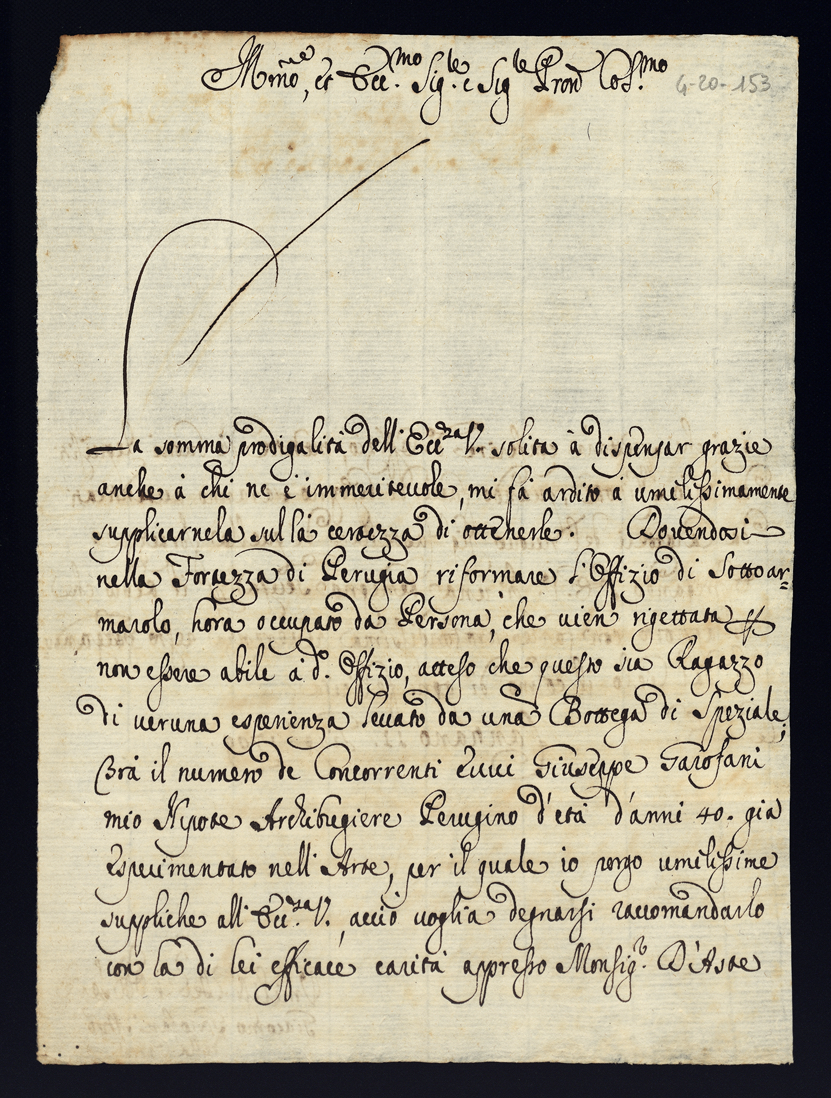 Illmo, et Ecc.mo Sig.re e Sig.re Pron Col.mo
4-20-153
La somma prodigalità dell'Ecc.za V. solita à dispensar grazie
anche à chi ne è immeritevole, mi fà ardito à umilissimamente
supplicarnela sulla certezza di ottenerle. Dovendosi
nella Fortezza di Perugia riformare l'Offizio di Sottoar=
marolo, hora occupato da Persona, che vien rigettata
non essere abile à d.o Offizio, atteso che questo sia Ragazzo
di veruna esperienza levato da una Bottega di Speziale;
Trà il numero de Concorrenti evvi Giuseppe Garofani
mio Nipote Archibugiere Perugino d'età d'anni 40. già
esperimentato nell'Arte, per il quale io porgo umilissime
suppliche all'Ecc.za V., acciò voglia degnarsi raccomandarlo
con la di lei efficace carità appresso Monsig.r D'Aste